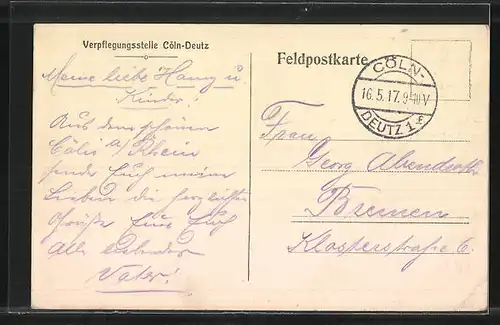 Verpflegungsstelle Cöln-Deutz
Meine liebe Hanny u.
Kinder!
Aus dem schönen
Cöln a/ Rhein
sende Euch meinen
Lieben die herzlichsten
Grüße Euer Euch
alle liebender
Vater!
Feldpostkarte
CÖLN-
16.5.17.9-10V
DEUTZ 1
Frau
Georg Abendroth
Bremen
Klosterstraße 6.